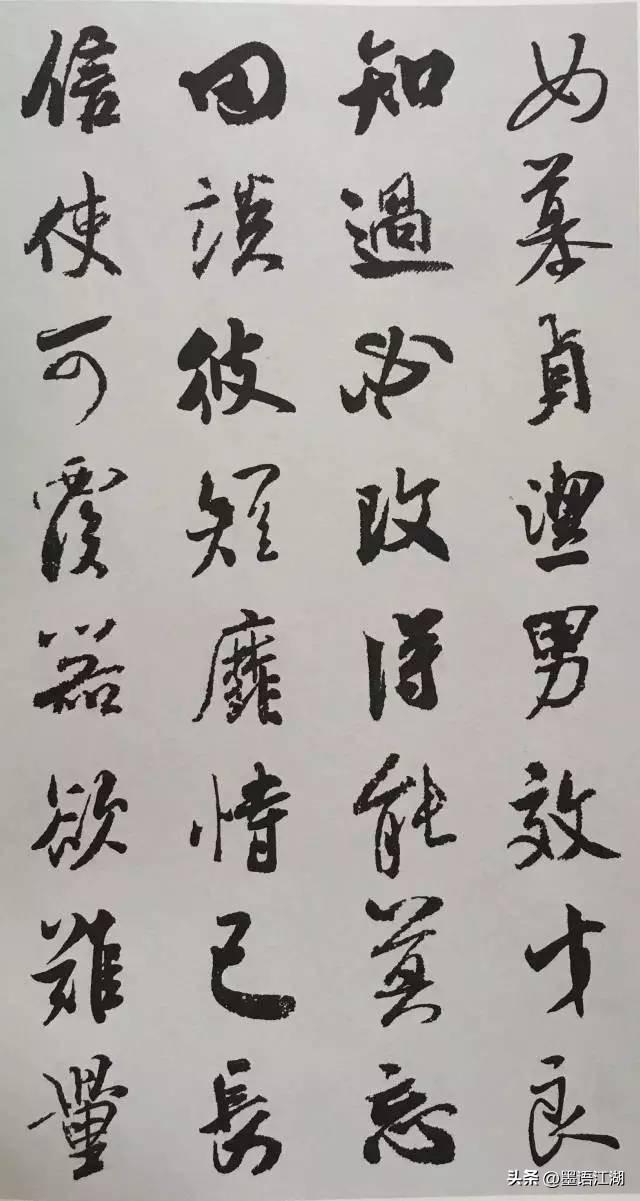 女慕貞潔男效才良
知過必改得能莫忘
罔談彼短靡恃己長
信使可覆器欲難量
头条 @墨语江湖